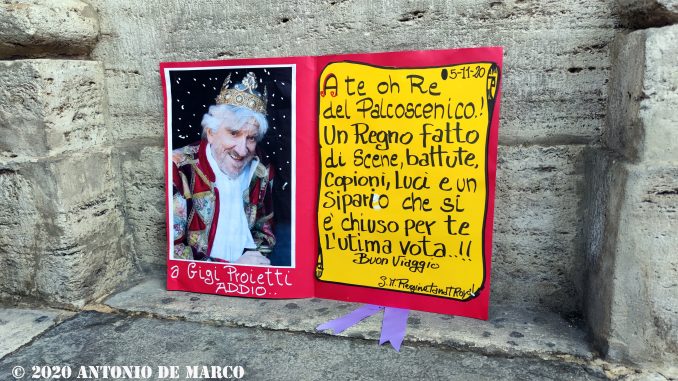 a Gigi Proietti
ADDIO..
5-11-20
A te oh Re
del Palcoscenico.!
Un Regno fatto
di Scene, battute,
Copioni, Luci e un
Sipario che si
è chiuso per te
l'utima vota..!!
Buon Viaggio
S.M.
© 2020 ANTONIO DE MARCO